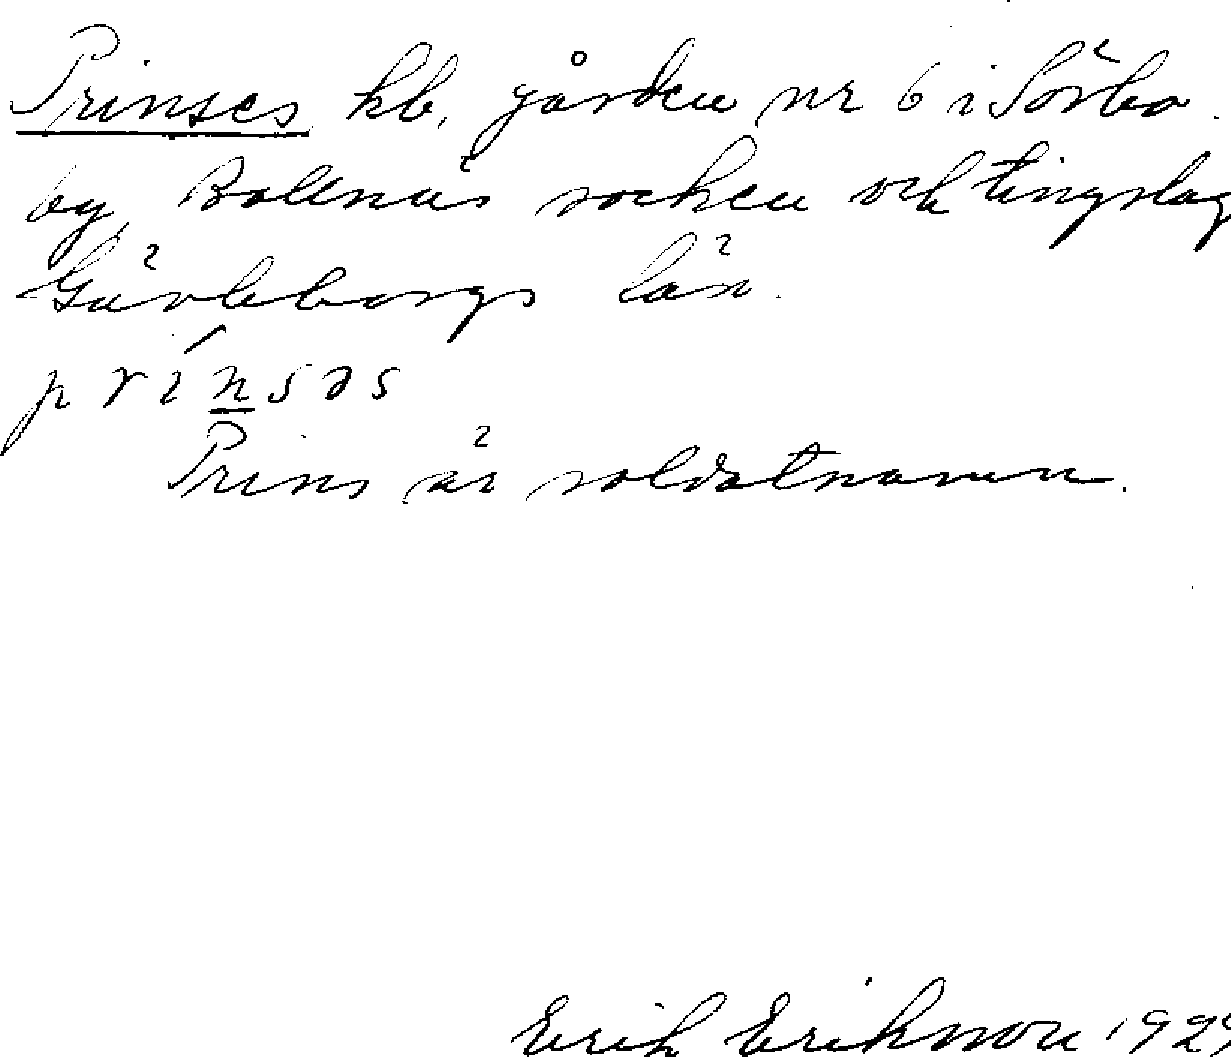 Prinses kb, gården nr 6 i Sörbo
by, Bollnäs socken och tingslag
Gävleborgs län.
prínsəs
Prins är soldatnamn.
Erik Eriksson 1929